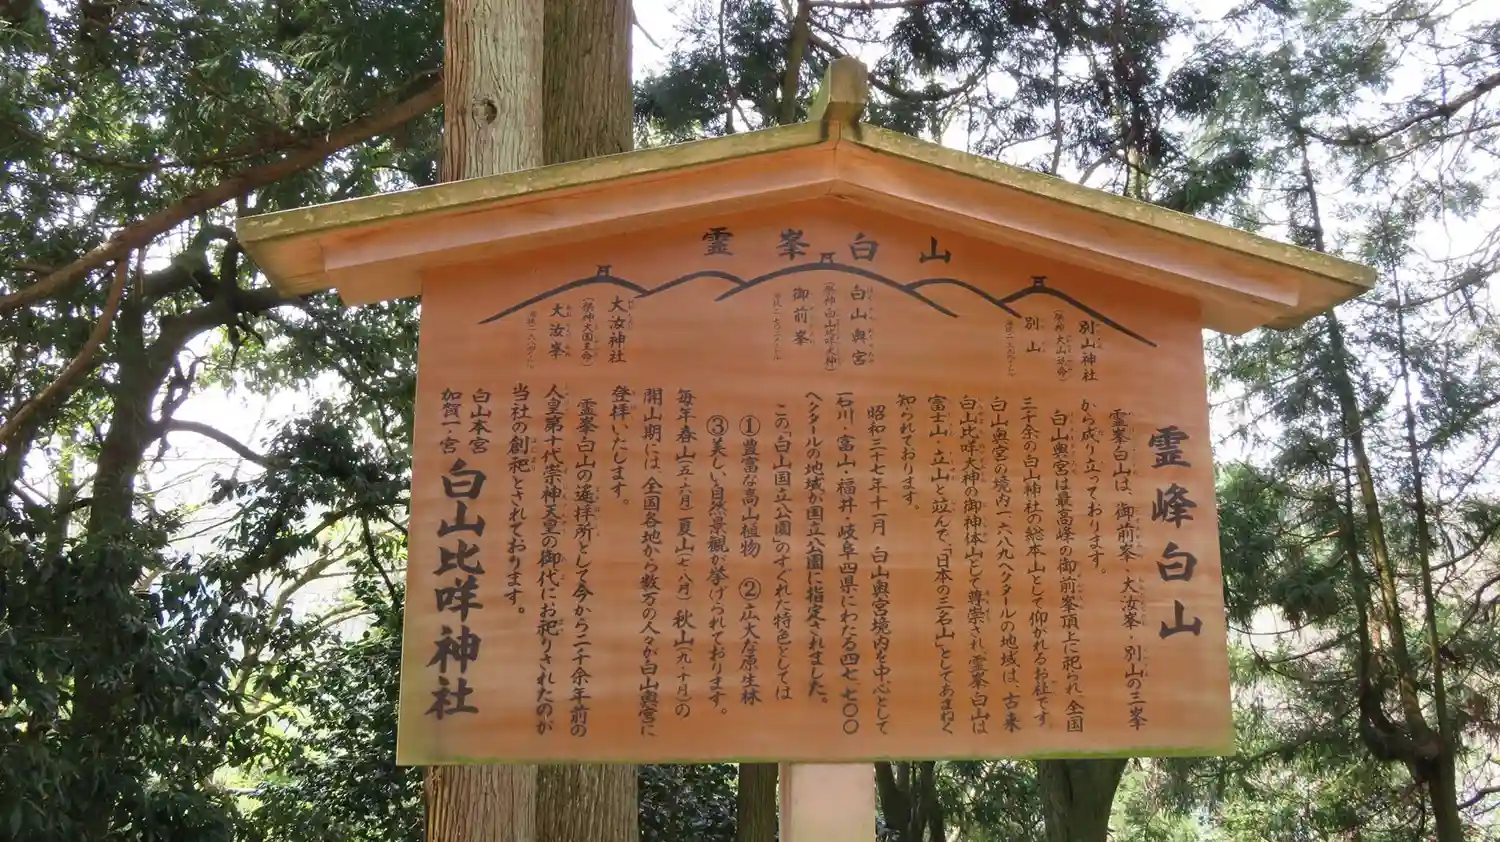 霊峯白山
別山神社
(祭神 大山祇命)
別山
白山奥宮
(祭神 白山比咩大神)
御前峯
大汝神社
(祭神 大国主命)
大汝峯
霊峰白山
霊峯白山は、御前峯、大汝峯、別山の三峯
から成り立っております。
白山奥宮は最高峰の御前峯頂上に祀られ、全国
三千余の白山神社の総本山として仰がれるお社です。
白山奥宮の境内一六八九ヘクタールの地域は、古来
白山比咩大神の御神体山として尊崇され、霊峯白山は
富士山、立山と竝んで、「日本の三名山」としてあまねく
知られております。
昭和三十七年十一月 白山奥宮境内を中心として
石川・富山・福井・岐阜四県にわたる四七七〇〇
ヘクタールの地域が国立公園に指定されました。
この、白山国立公園のすぐれた特色としては
①豊富な高山植物 ②広大な原生林
③美しい自然景観が挙げられております。
毎年春山(五・六月)夏山(七・八月)秋山(九・十月)の
開山期には、全国各地から数万の人々が白山奥宮に
登拝いたします。
霊峯白山の遙拝所として今から二千余年前の
人皇第十代崇神天皇の御代にお祀りされたのが
当社の創祀とされております。
白山本宮
加賀一宮
白山比咩神社